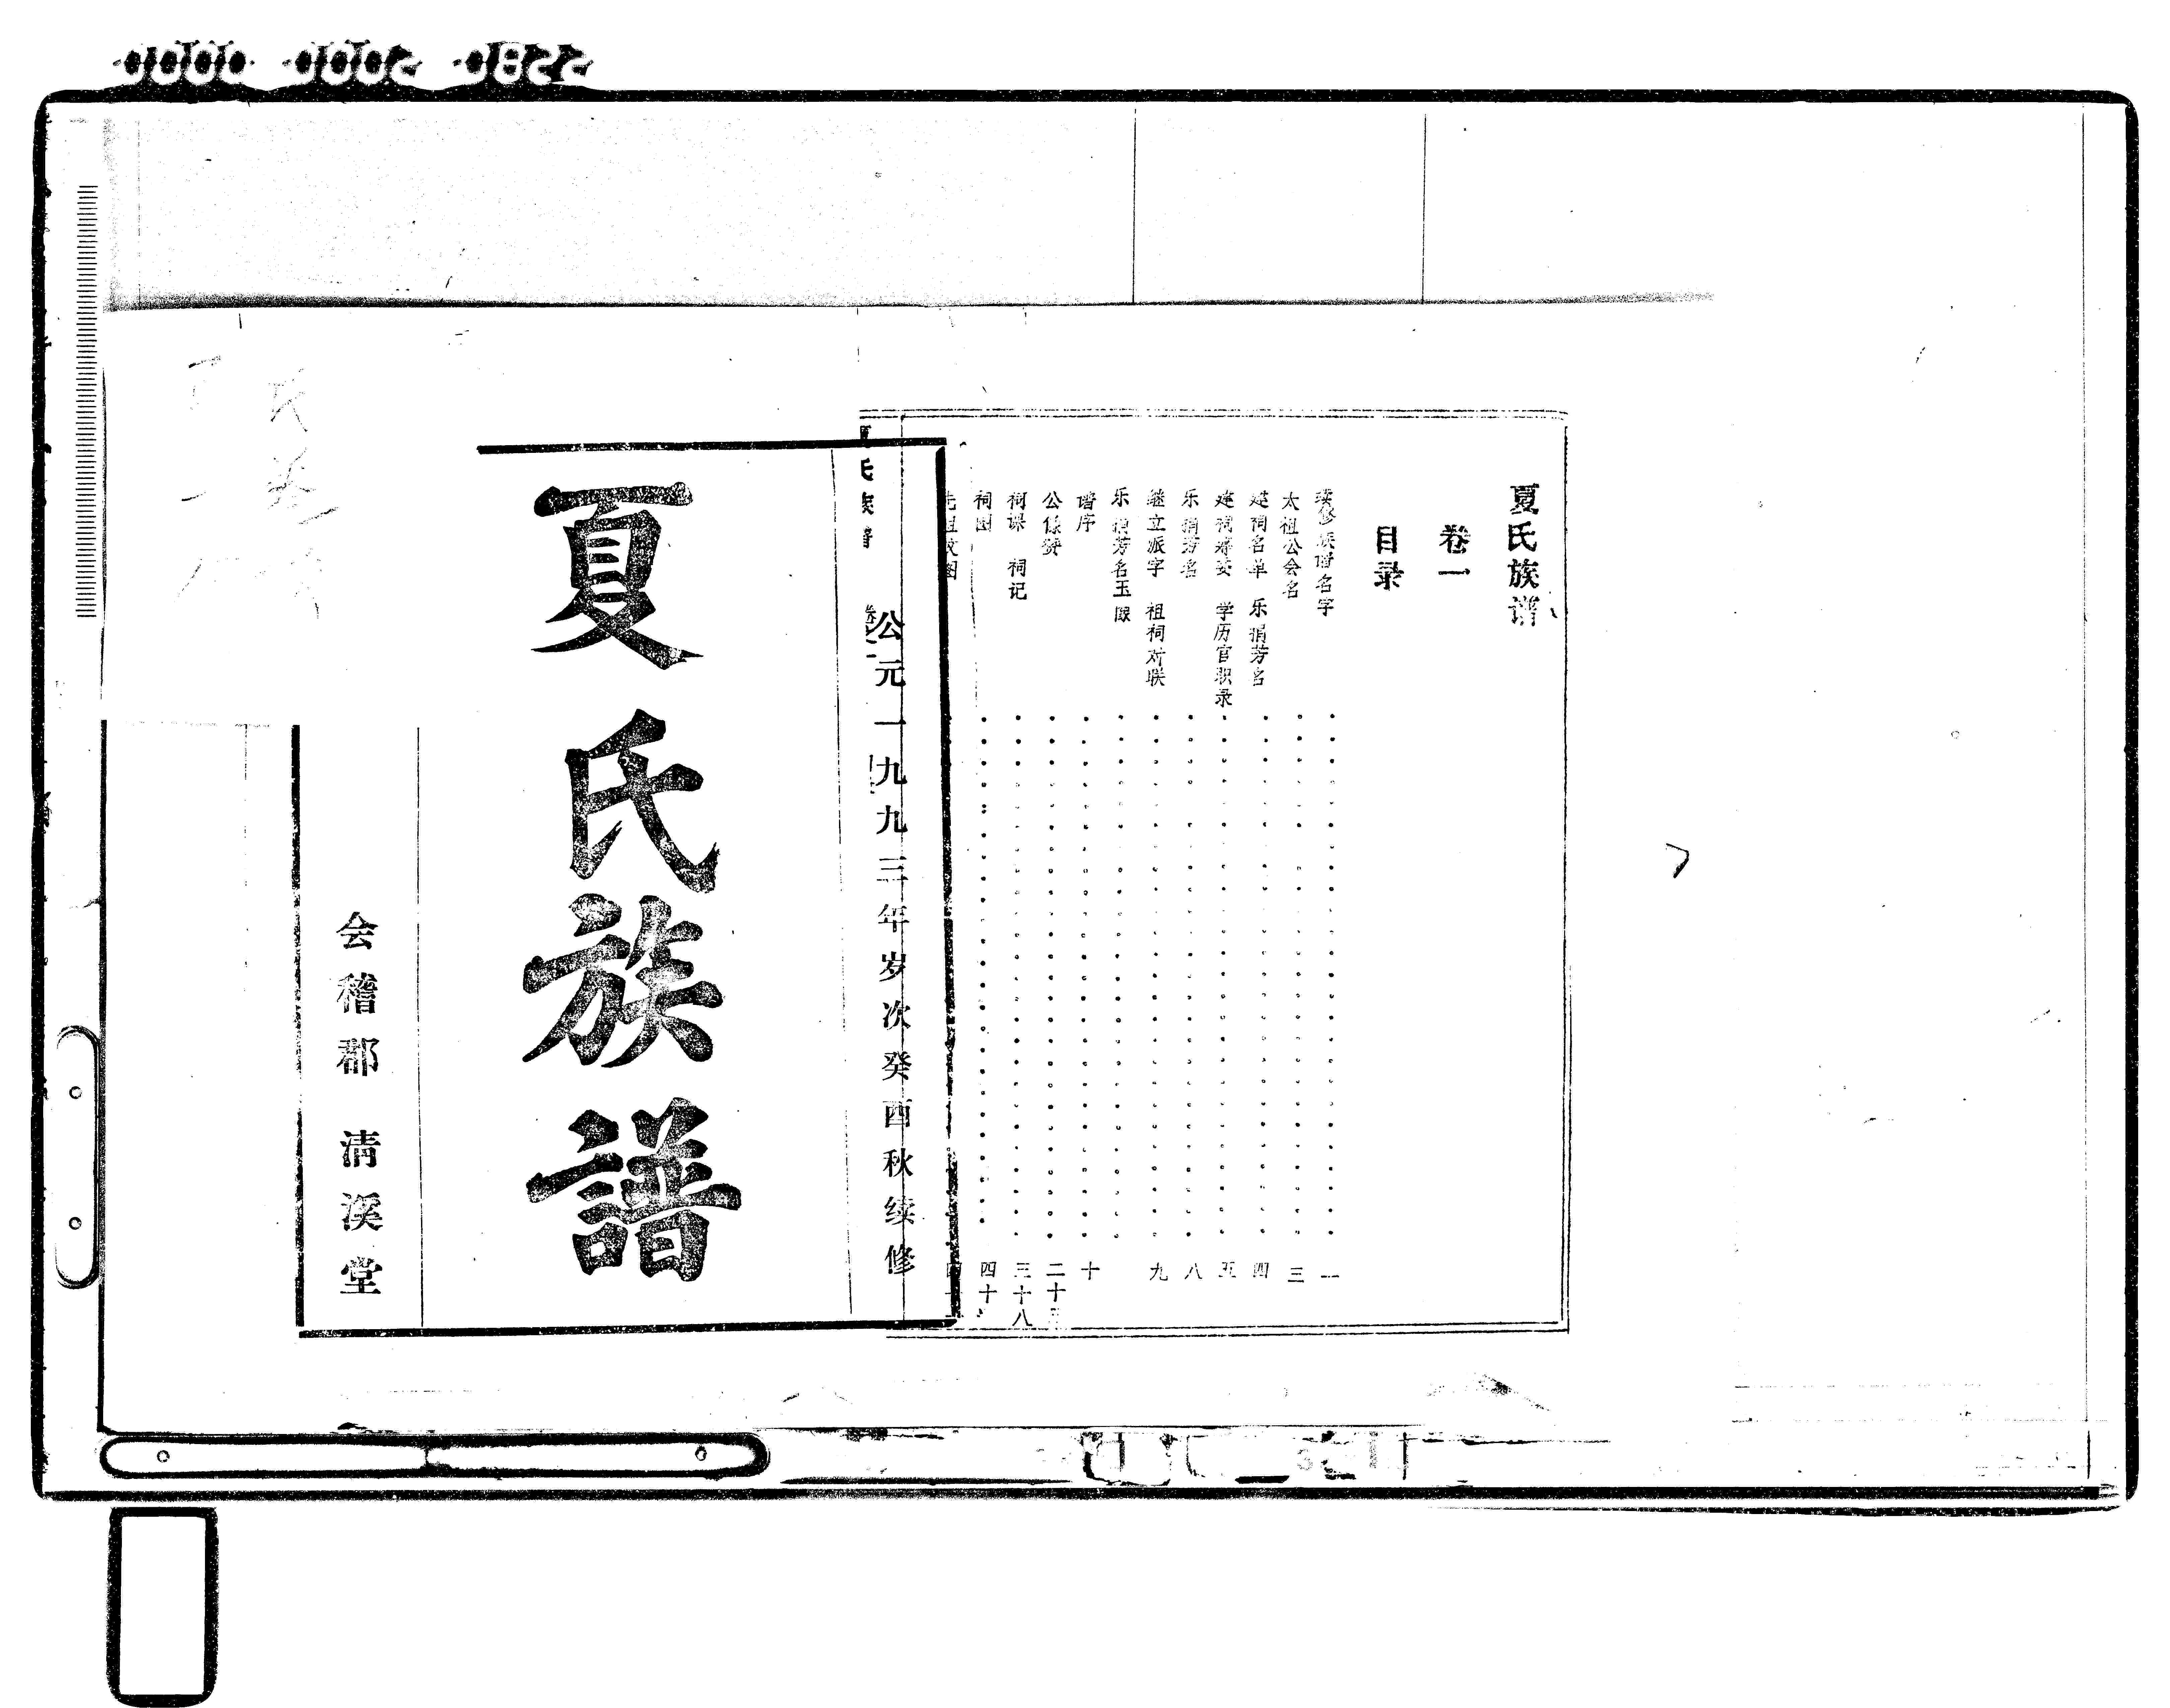 夏氏族谱
卷一
目录
续修族谱名字 一
太祖公会名 三
建祠名单 乐捐芳名 四
建祠筹委 学历官职录 五
乐捐芳名 八
继立派字 祖祠对联 九
乐捐芳名玉照
谱序 十
公像赞 二十
祠课 祠记 三十八
祠图 四十
公元一九九三年岁次癸酉秋续修
夏氏族譜
会稽郡 清溪堂